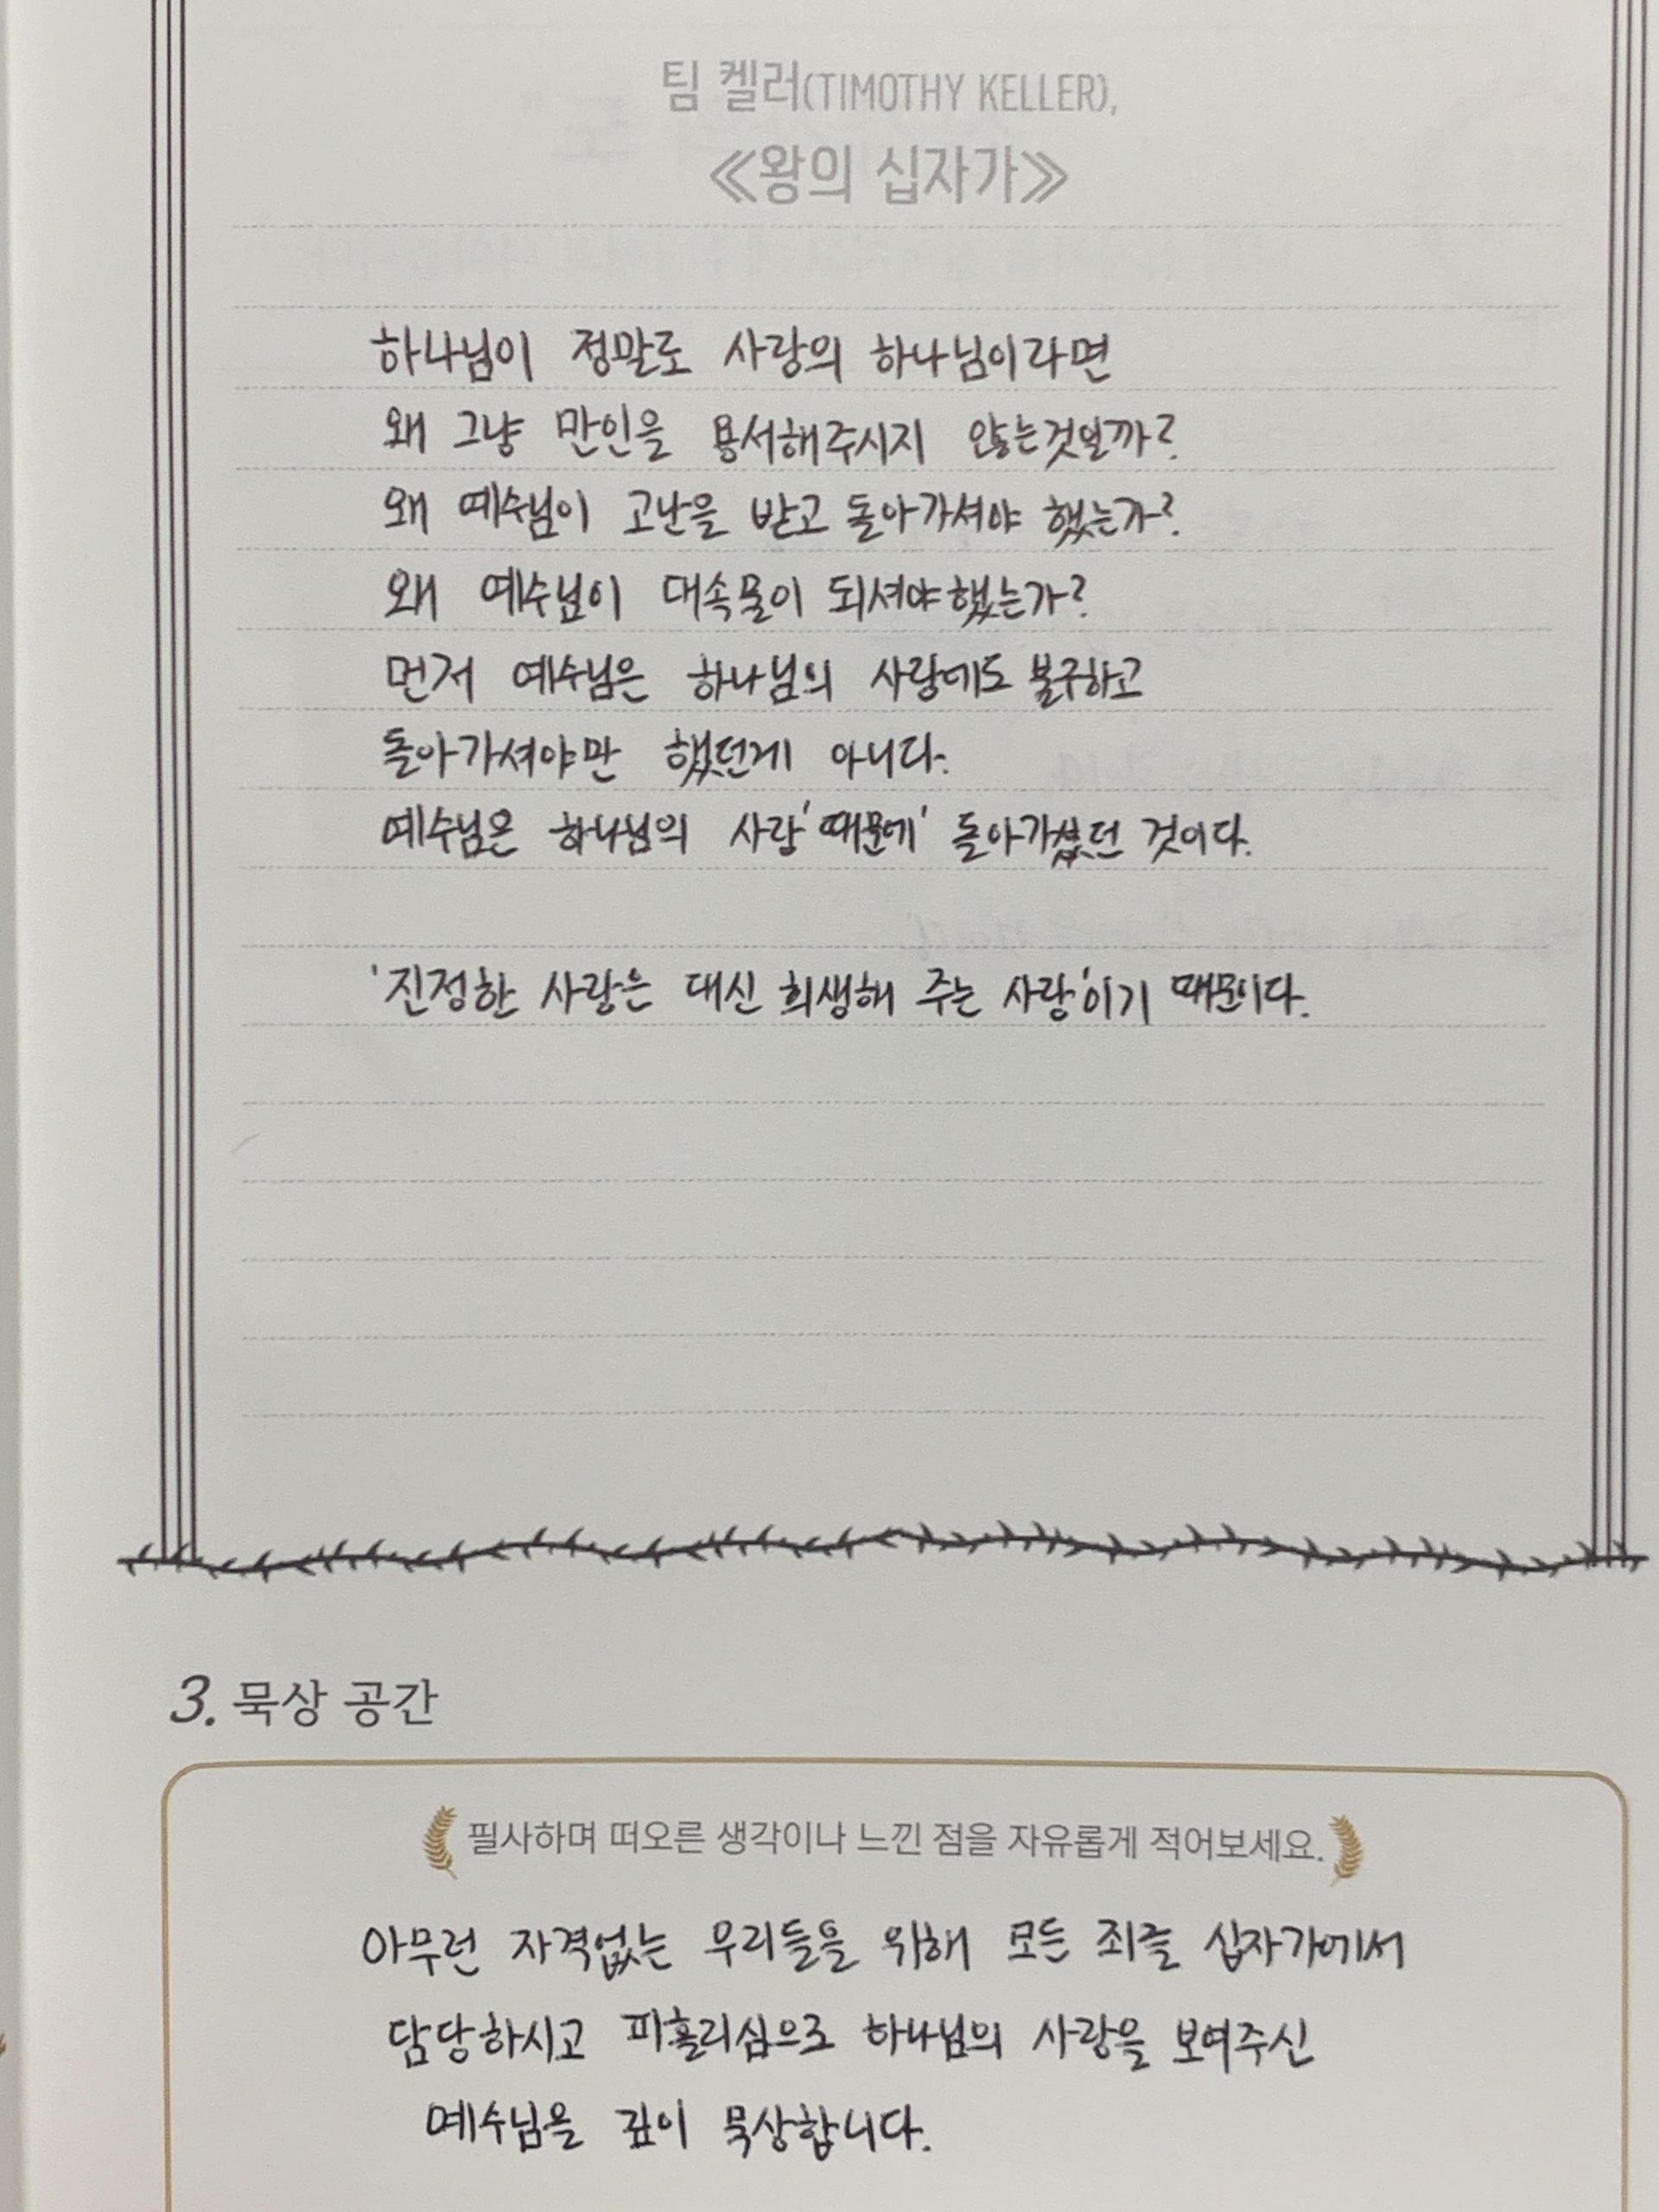 팀 켈러(TIMOTHY KELLER),
≪왕의 십자가≫
하나님이 정말로 사랑의 하나님이라면
왜 그냥 만인을 용서해주시지 않는것일까?
왜 예수님이 고난을 받고 돌아가셔야 했는가?
왜 예수님이 대속물이 되셔야했는가?
먼저 예수님은 하나님의 사랑에도 불구하고
돌아가셔야만 했던게 아니다.
예수님은 하나님의 사랑'때문에' 돌아가셨던 것이다.
'진정한 사랑은 대신 희생해 주는 사랑'이기 때문이다.
3. 묵상 공간
필사하며 떠오른 생각이나 느낀 점을 자유롭게 적어보세요.
아무런 자격없는 우리들을 위해 모든 죄를 십자가에서
담당하시고 피흘리심으로 하나님의 사랑을 보여주신
예수님을 깊이 묵상합니다.